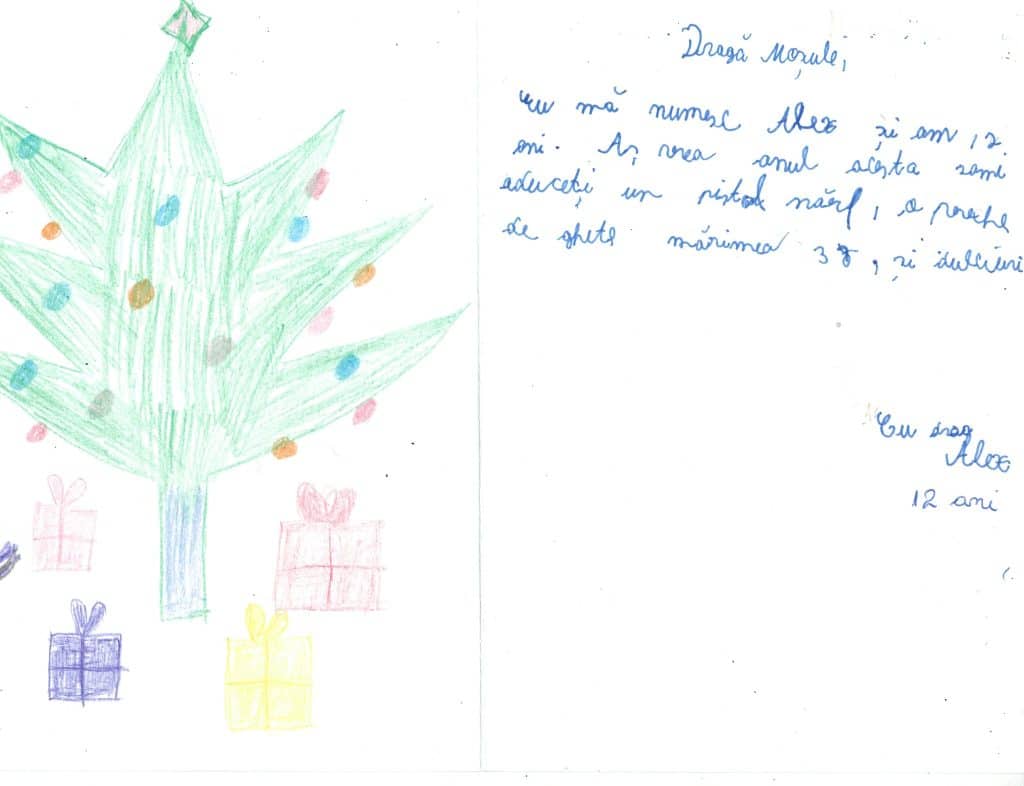 Dragă Moșule,
Eu mă numesc Alex și am 12
ani. Aș vrea anul acesta sami
aduceți un pistol nărf, o pereche
de ghete mărimea 38, și dulciuri
Cu drag
Alex
12 ani